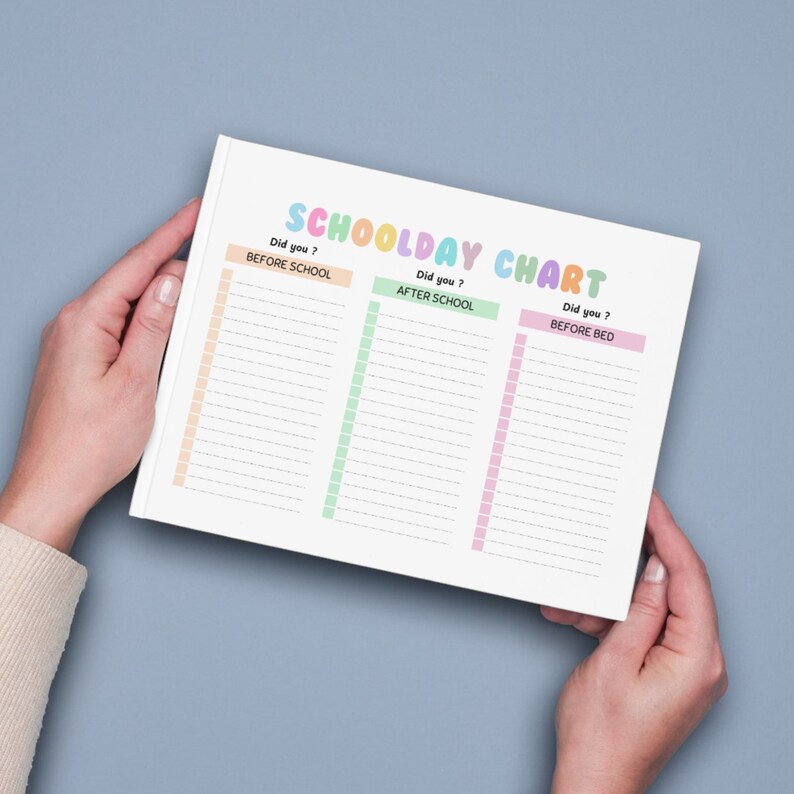 SCHOOLDAY CHART
Did you ?
BEFORE SCHOOL
Did you ?
AFTER SCHOOL
Did you ?
BEFORE BED